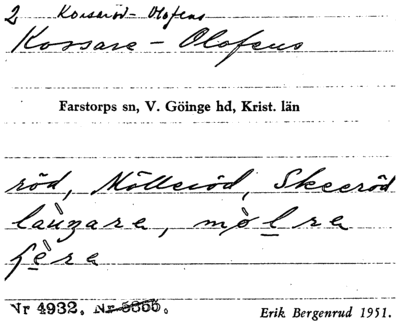 2 Korseröd - Olofens
Korsare - Olofens
Farstorps sn, V. Göinge hd, Krist. län
röd, Mölleröd, Skeeröd
fère
Nr 4932. Nr 5855.
Erik Bergenrud 1951.